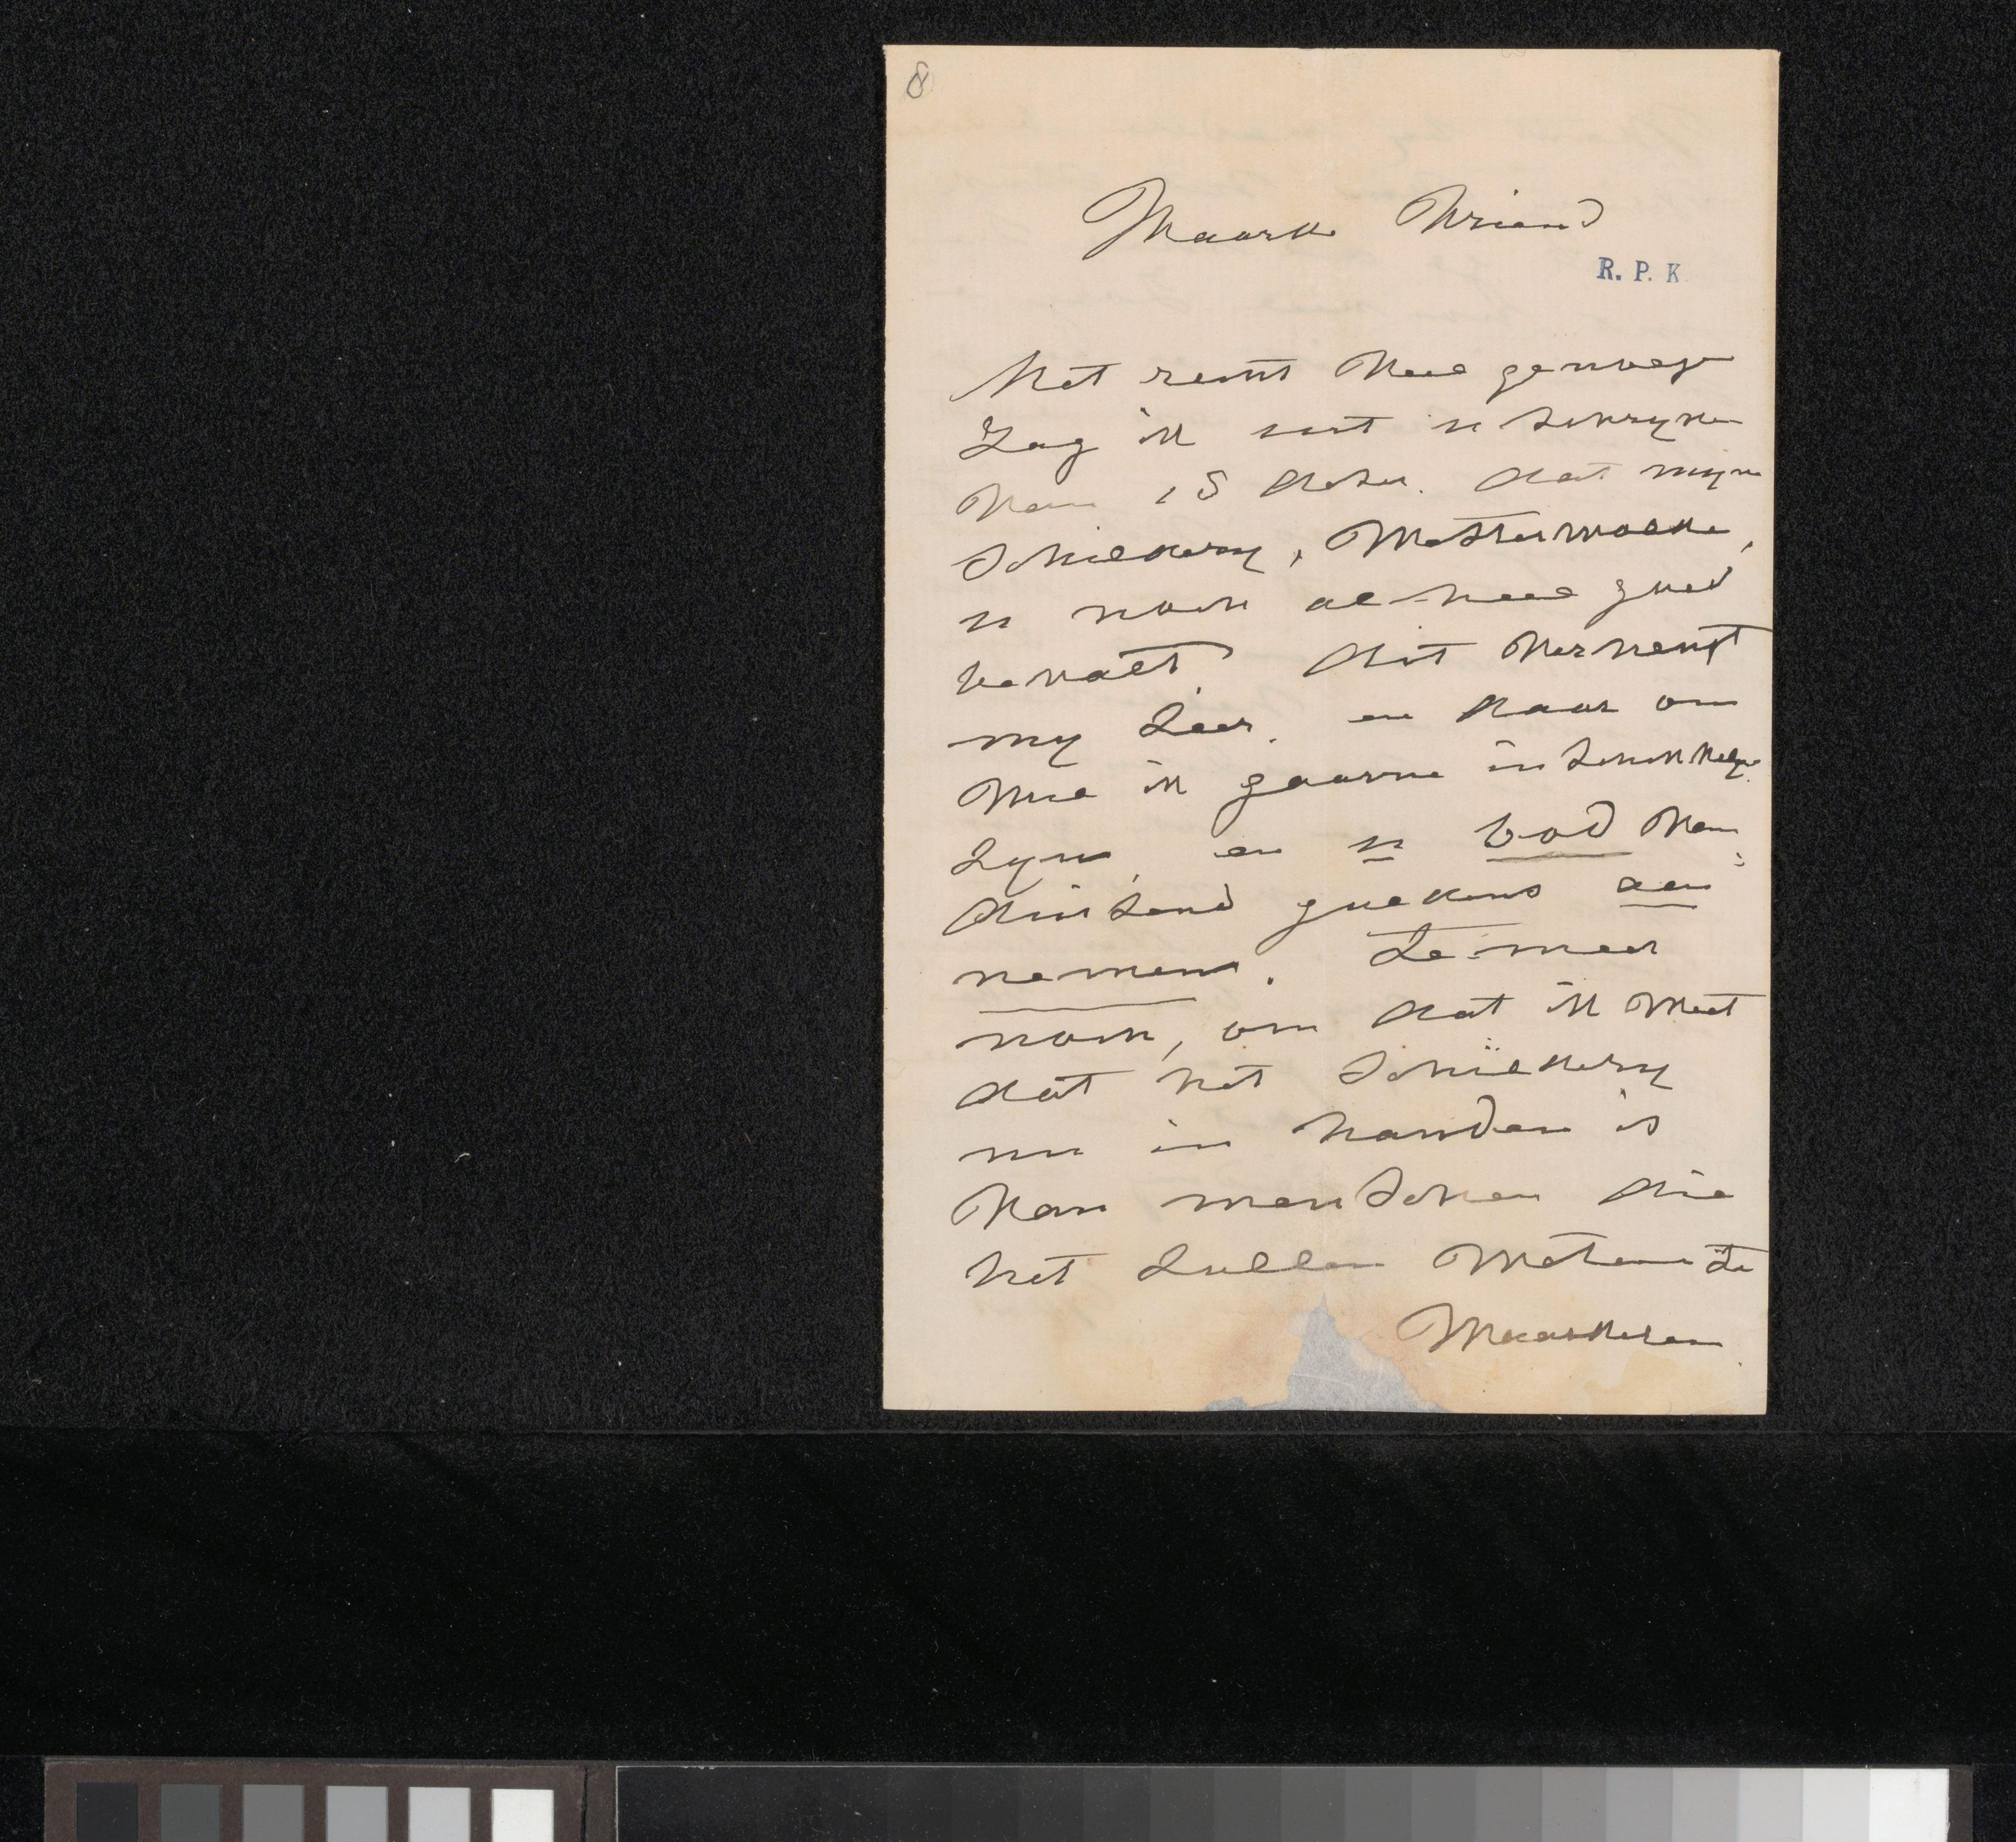 8
Waarde Vriend
R. P. K
Met recht veel genoegen
Zag ik uit u schryven
van 15 deser. dat myne
Schildery, Wetterwolke,
u noch al heel goed
bevalt. dit verheugt
my Zeer. en daar om
wil ik gaarne inschikkelyk
Zyn, en u bod van
duisend guldens aan
nemen. Te meer
noch, om dat ik weet
dat het Schildery
nu in handen is
van menschen die
het Zullen Weten te
Waarderen.